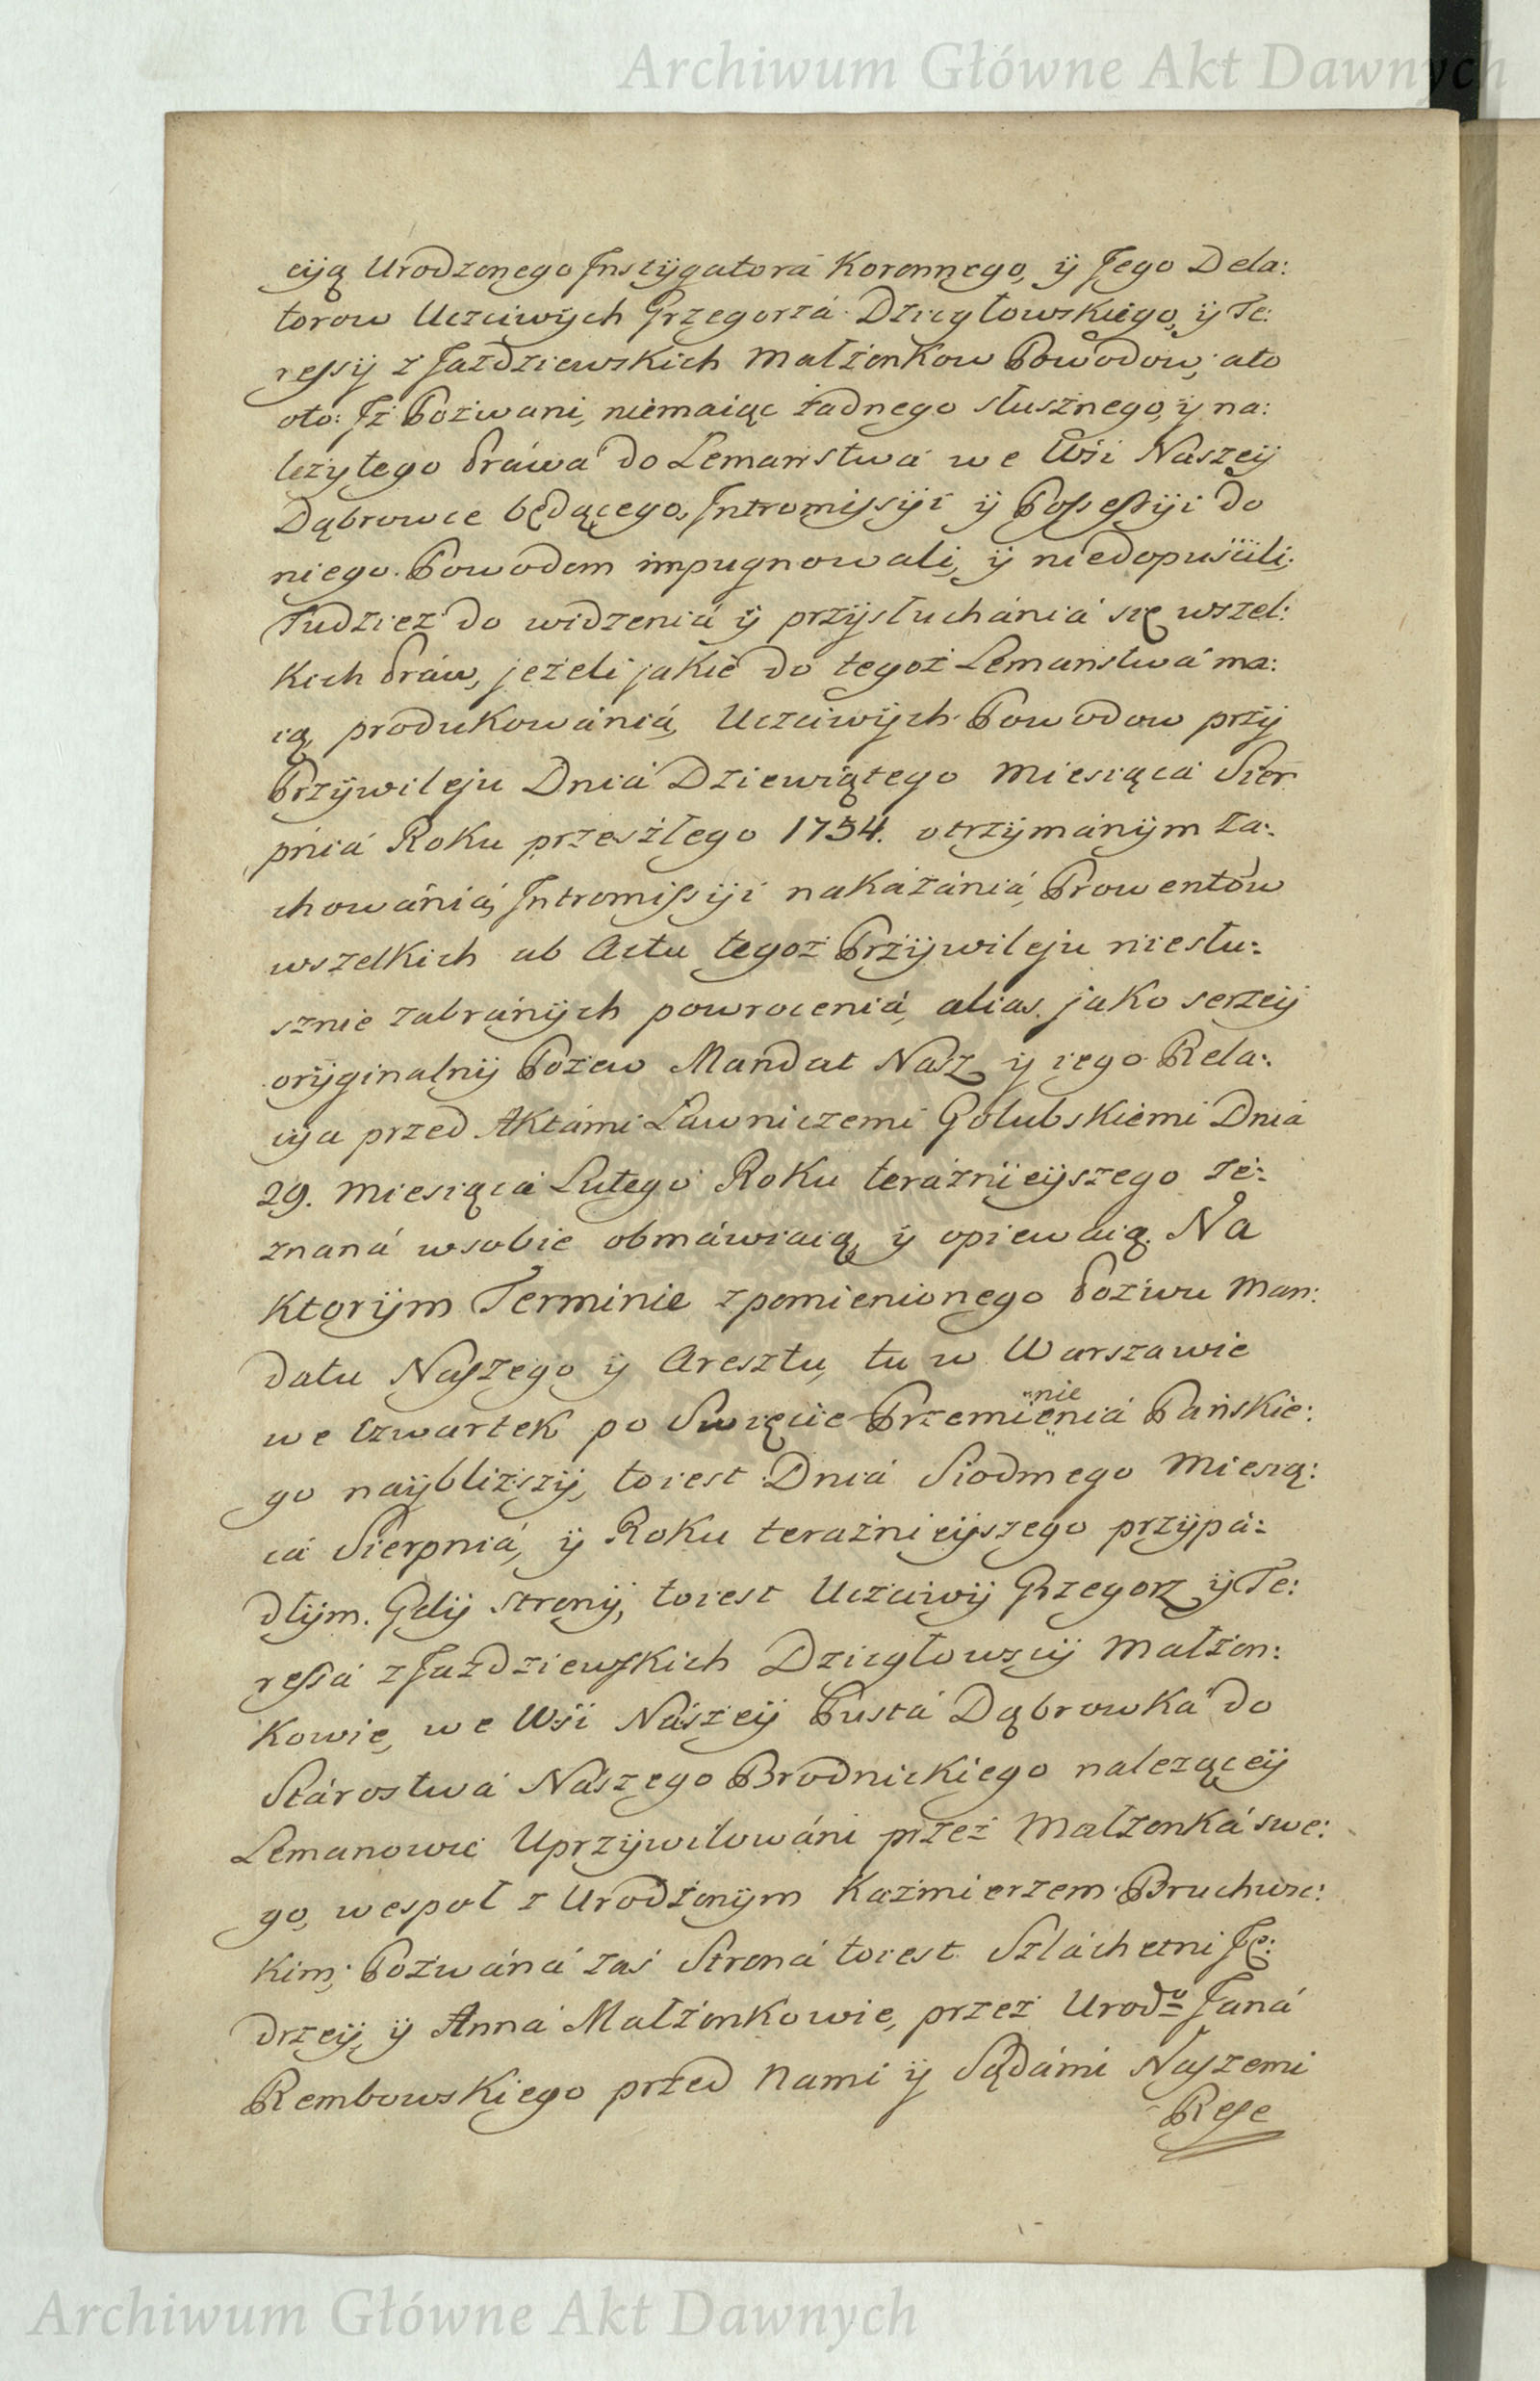 Archiwum Główne Akt Dawnych
cyą Urodzonego Instygatora Koronnego, ÿ Jego Dela:
torow Uczciwÿch Grzegorzá Dzięgłowskiego, ÿ Te:
ressÿ z Jażdziewskich Małżonkow Powodow, ato
oto: Jż Pozwani, niemaiąc żadnego słusznego, ÿ na:
leżytego Práwa do Lemaństwá we Wśi Naszeÿ
Dąbrowce będącego, Intromissÿi ÿ Possessÿi do
niego Powodom impugnowali, ÿ niedopuścili;
Tudzież do widzeniá ÿ przÿsłuchániá się wszel:
kich Práw, jeżeli jakie do tegoż Lemaństwá ma:
ią, produkowániá, Uczciwÿch Powodow przÿ
Przÿwileju Dniá Dziewiątego Miesiąca Sier
pniá Roku przeszłego 1754. otrzÿmánÿm za:
chowániá, Intromissÿi nakazániá, Prowentów
wszelkich ab Actu tegoż Przÿwileju niesłu:
sznie zabránÿch powroceniá, alias jako serzeÿ
orÿginalnÿ Pozew Mandat Nasz ÿ iego Rela:
cÿa przed Aktámi Ławniczemi Golubskiemi Dniá
29. Miesiąca Lutego Roku teraznieÿszego ze:
znaná wsobie obmáwiaią, ÿ opiewaią. Na
ktorÿm Terminie zpomienionego Pozwu Man:
datu Naszego ÿ Aresztu, tu w Warszawie
we Czwartek po Swięcie Przemienieniá Pańskie:
go naÿbliższÿ, toiest Dniá Siodmego Miesią:
cá Sierpniá, ÿ Roku teraznieÿszego przÿpá:
dłÿm. Gdÿ stronÿ, toiest Uczciwÿ Grzegorz ÿ Te:
ressá z Jażdziewskich Dzięgłowscÿ Małżon:
kowie, we Wśi Nászeÿ Pustá Dąbrowká do
Stárostwá Nászego Brodnickiego należąceÿ
Lemanowie Uprzÿwilowáni przez Małżonká swe:
go, wespoł z Urodzonÿm Kazmierzem Bruchwic:
kim; Pozwáná zaś Stroná toiest Szláchetni Ję:
drzeÿ, ÿ Anná Małżonkowie, przez Urodo Janá
Rembowskiego przed Nami ÿ Sądámi Naszemi
Rese
Archiwum Główne Akt Dawnych